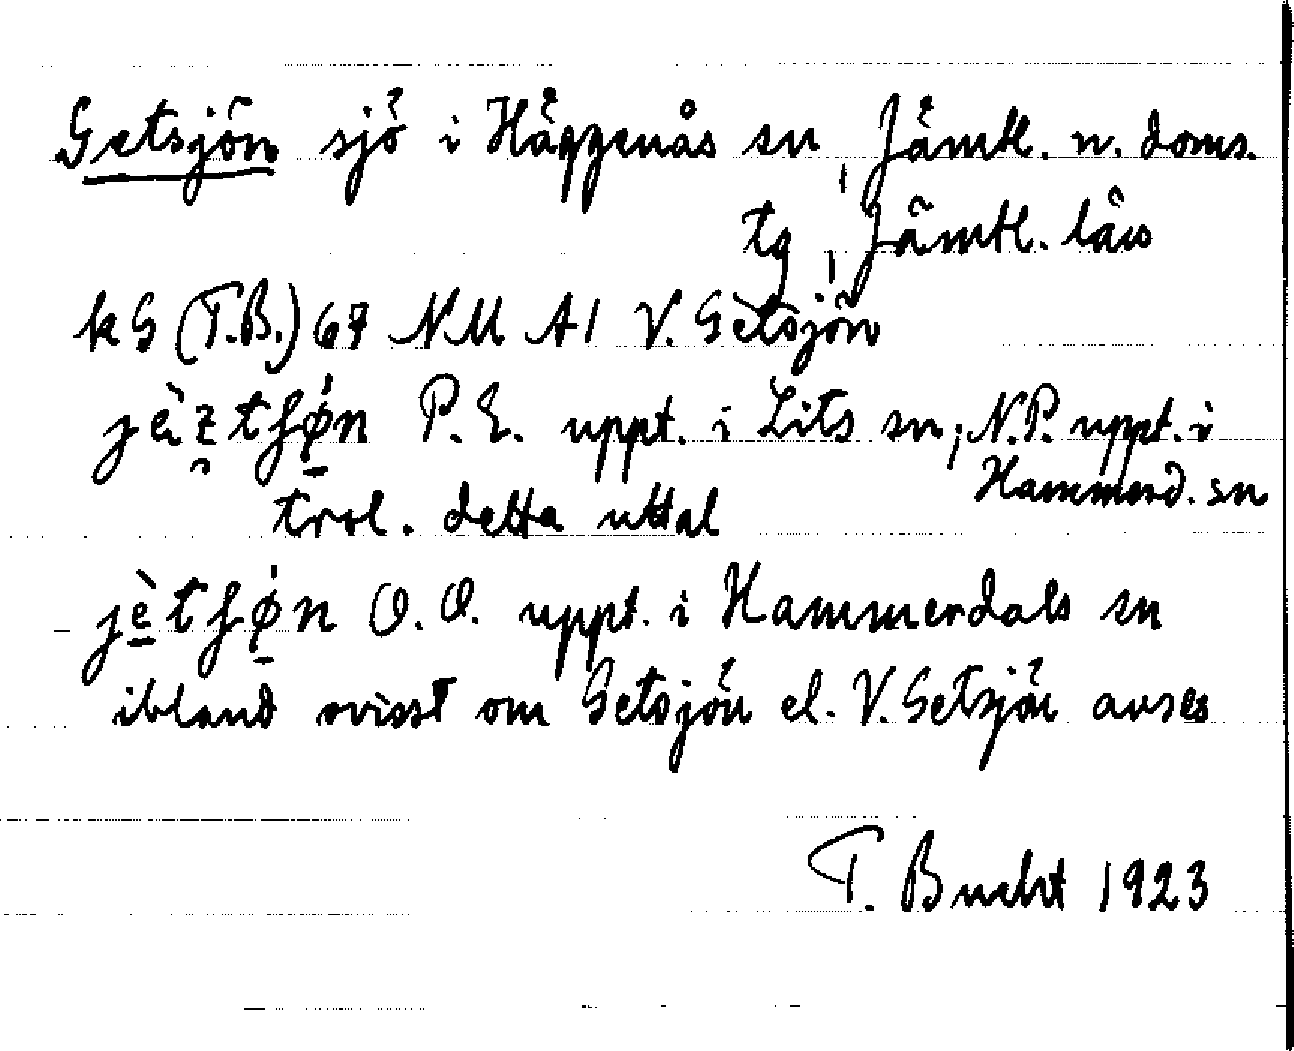 Getsjön sjö i Häggenås sn, Jämtl. n. doms.
tg, Jämtl. län
kG (T.B.) 67 NM A1 V. Getsjön
P.E. uppt. i Lits sn; N.P. uppt. i
Hammerd. sn
trol. detta uttal
O.O. uppt. i Hammerdals sn
ibland ovisst om Getsjön el. V. Getsjön avses
T. Bucht 1923